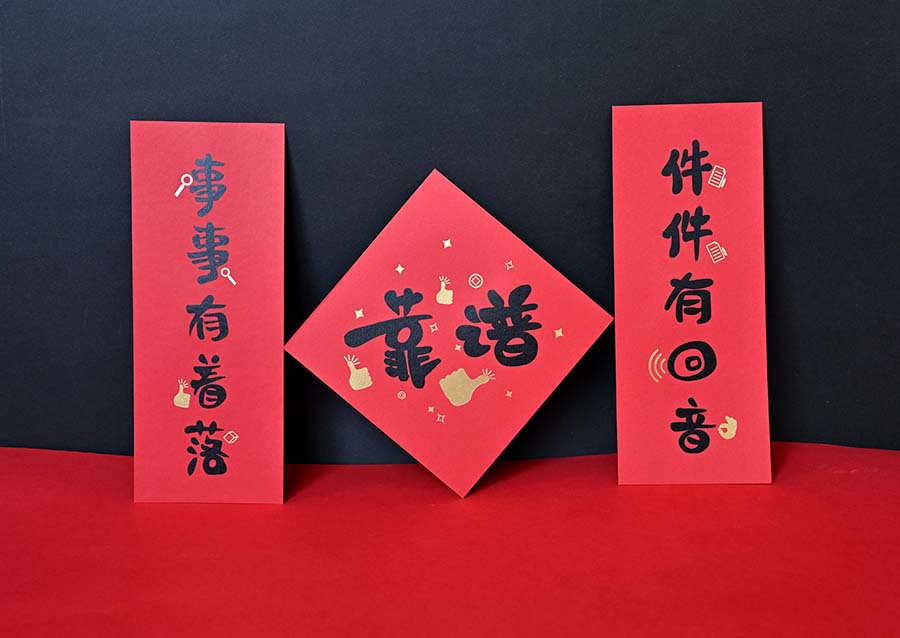 事事有着落
靠谱
件件有回音